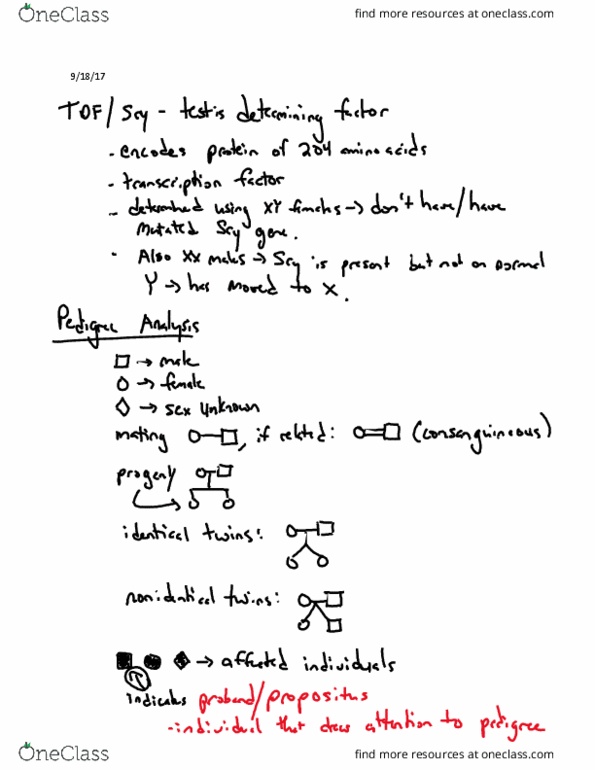 OneClass
find more resources at oneclass.com
9/18/17
TDF/Sry - testis determining factor
- encodes protein of 204 amino acids
- transcription factor
- determined using XY females → don't have/have
mutated Sry gene.
- Also XX males → Sry is present but not on normal
Y → has moved to X.
Pedigree Analysis
□ → male
○ → female
◇ → sex unknown
mating ○─□, if related: ○═□ (consanguineous)
progeny
identical twins:
nonidentical twins:
■ ● ◆ → affected individuals
indicates proband/propositus
- individual that draws attention to pedigree
OneClass
find more resources at oneclass.com